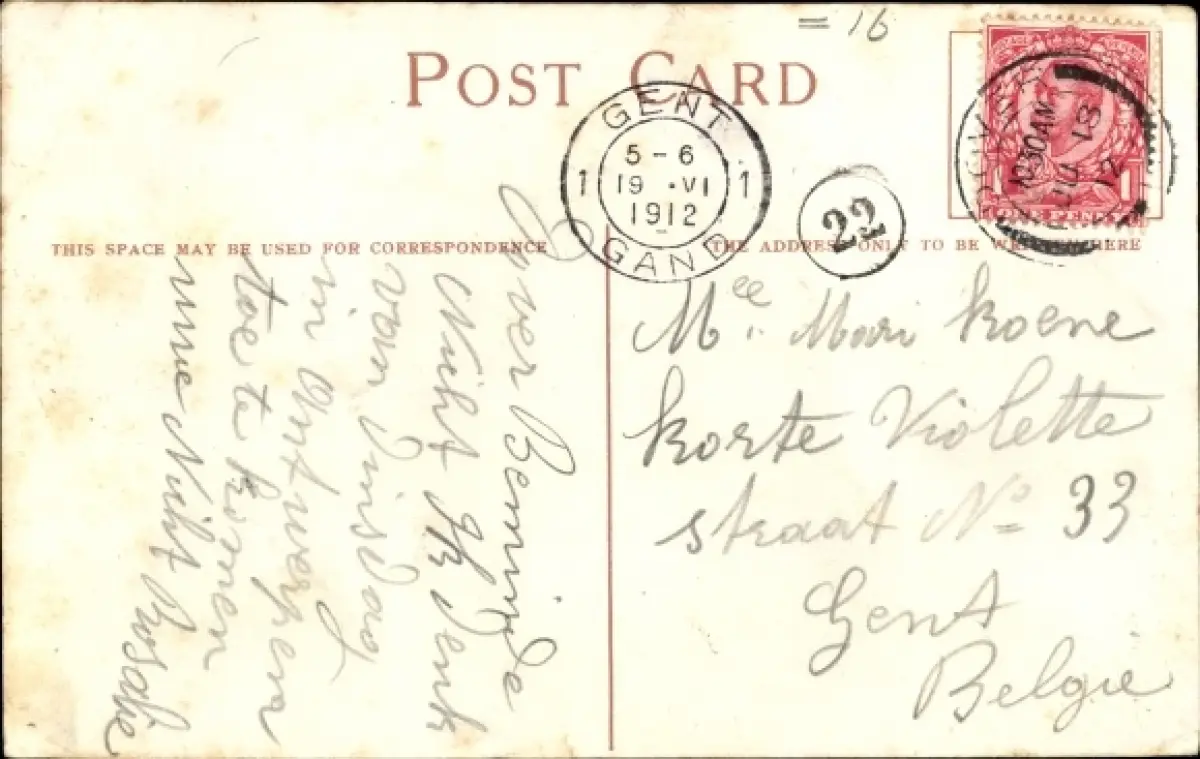 = 16
POST CARD
GENT
5-6
1 19 · VI 1
1912
GAND
22
10.30AM
18
12
1 1
ONE PENNY
THIS SPACE MAY BE USED FOR CORRESPONDENCE
THE ADDRESS ONLY TO BE WRITTEN HERE
Zeer Beminde
Nicht Ik Denk
van Dinsdag
in Antwerpen
toe te komen
uwe Nicht Rosalie
Mee. Mari Koene
Korte Violette
straat No 33
Gent
Belgie